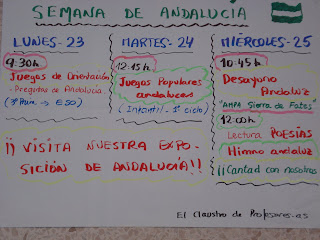 SEMANA DE ANDALUCÍA
LUNES-23
9:30h
Juegos de Orientación
- Preguntas de Andalucía
(3º Prim. → ESO)
MARTES-24
12:15h
Juegos Populares
andaluces
(Infantil - 1º ciclo)
MIÉRCOLES-25
10:45h
Desayuno
Andaluz
"AMPA Sierra de Fates"
12:00h
Lectura POESÍAS
Himno andaluz
¡¡Cantad con nosotros
¡¡VISITA NUESTRA EXPO-
SICIÓN DE ANDALUCÍA!!
El Claustro de Profesores-as